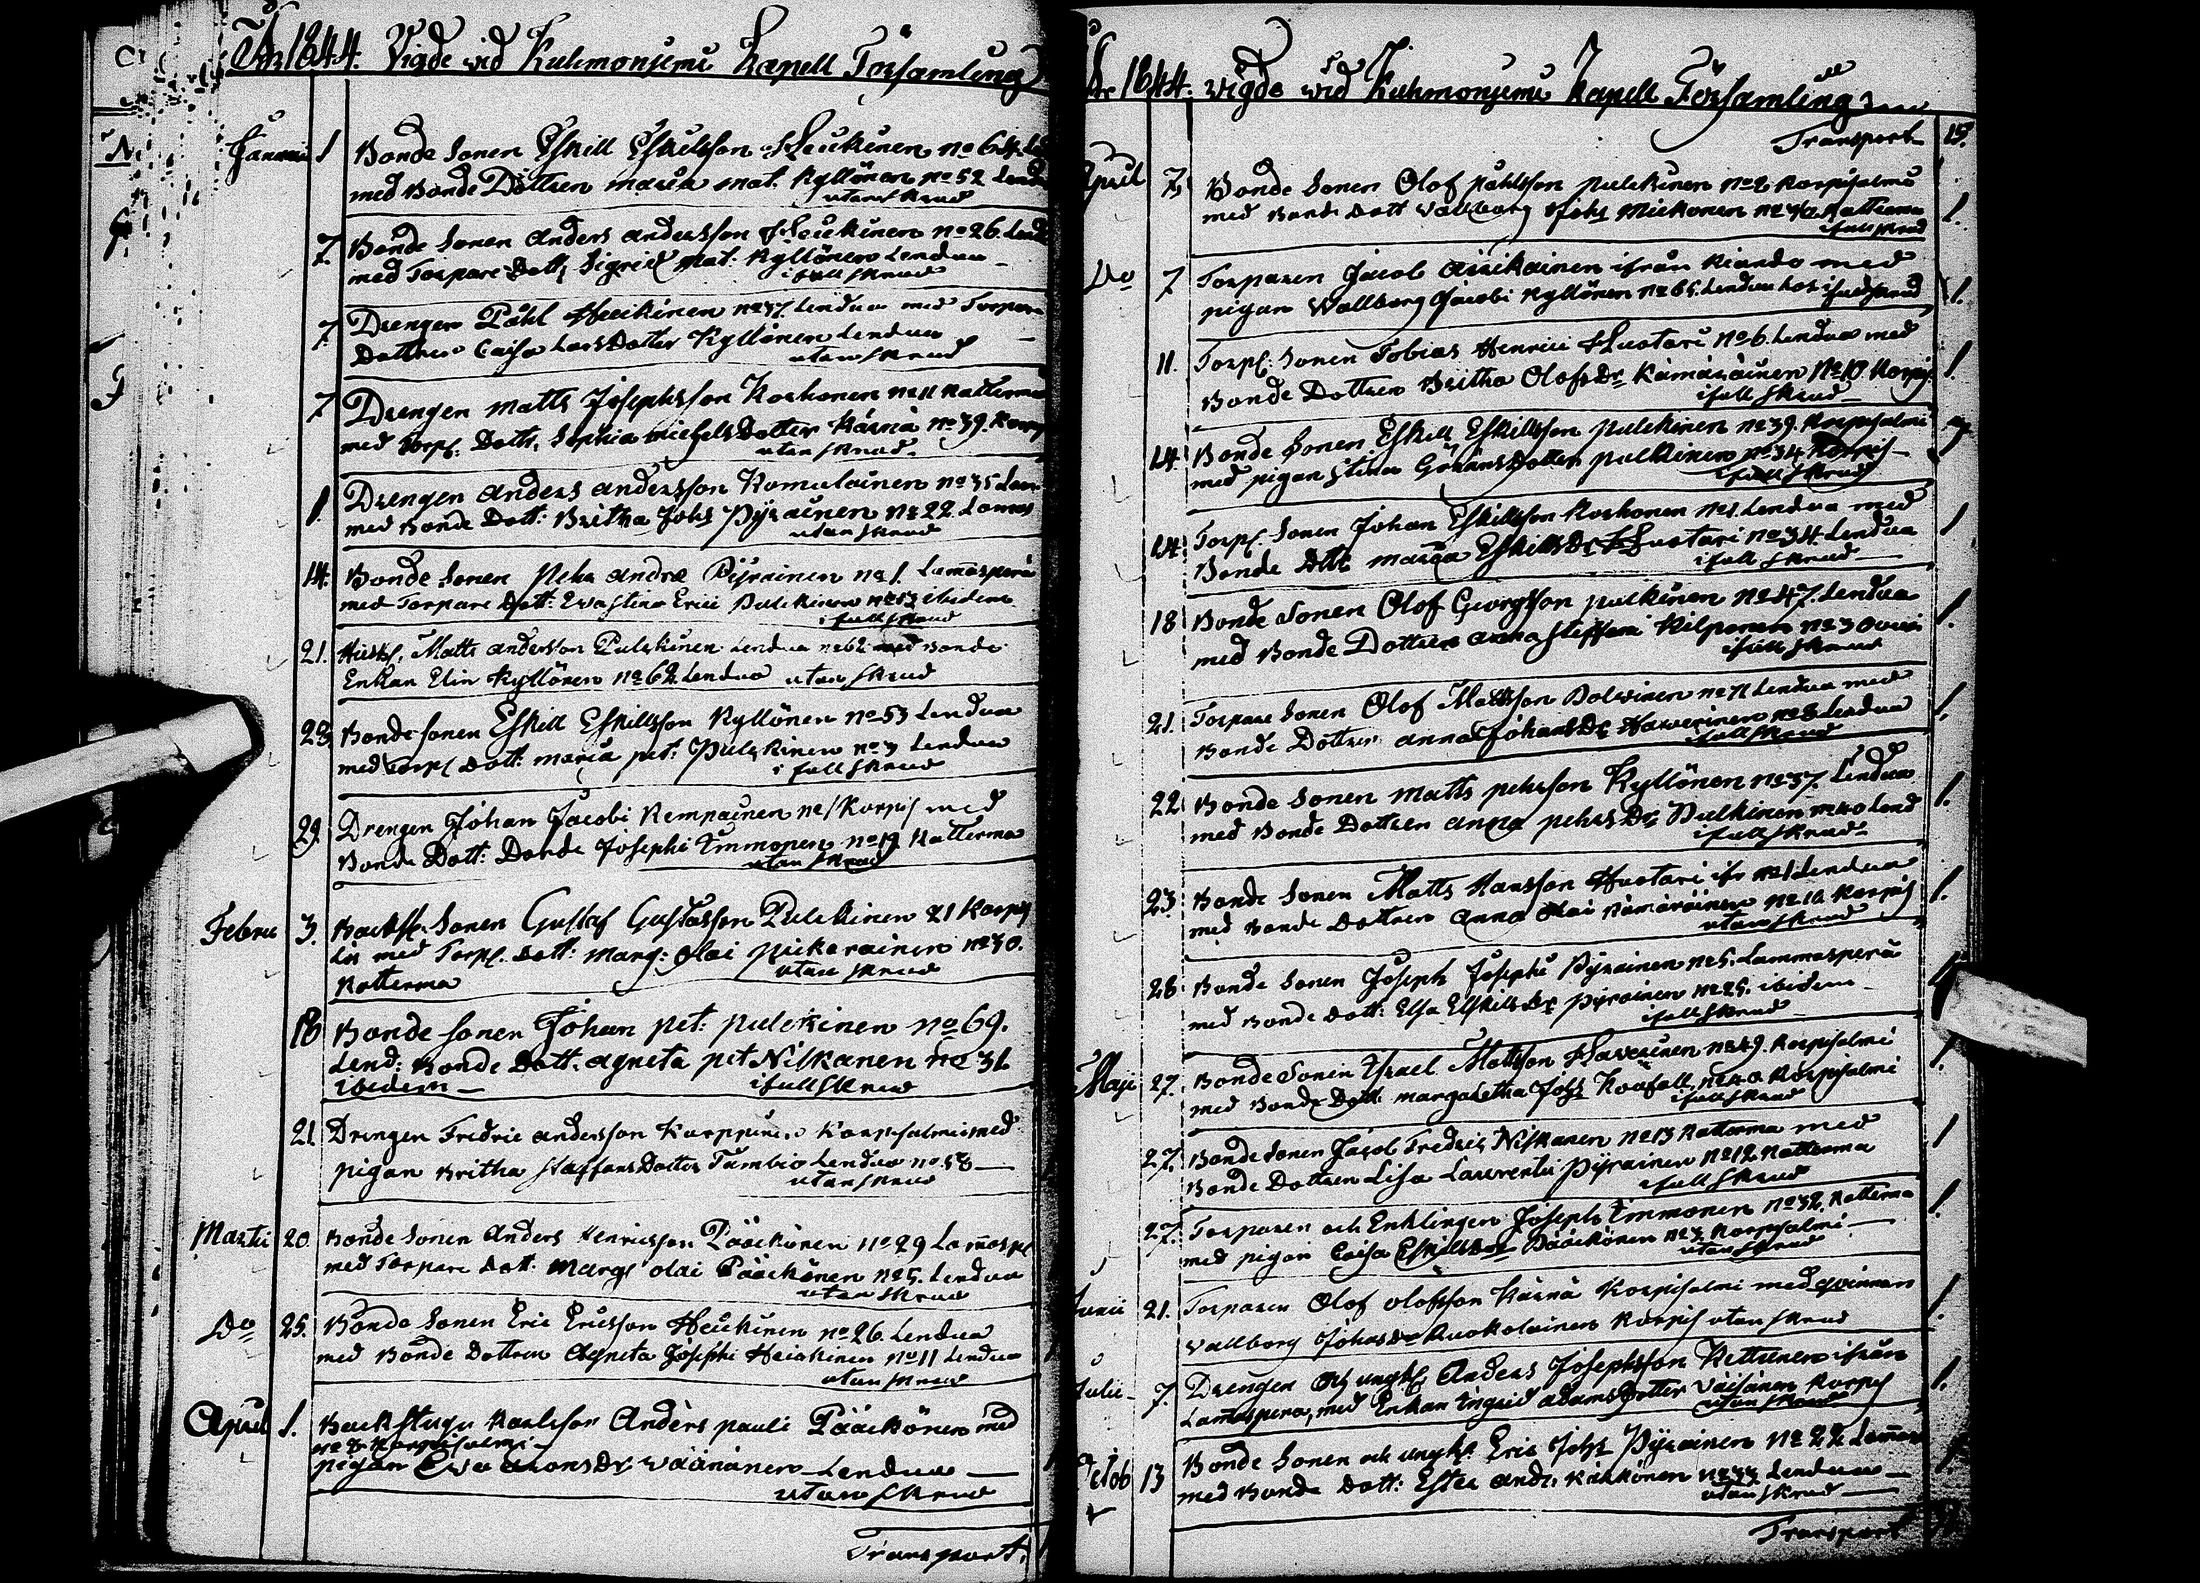 År 1844. Vigde vid Kuhmoniemi Kapell Församling
Januari 1 Bonde Sonen Eskill Eskilsson Heikinen No 64
med Bonde Dottren Maria Mat. Kyllönen No 52 Lendua
utan skrud
7. Bonde Sonen Anders Andersson Heikinen No 26. Lendua
med Torpare Dott. Sigrid Mat. Kyllönen Lendua
i full skrud
7 Drengen Påhl Heikinen No 37. Lendua med Torpare
Dottren Caisa Lars Dotter Kyllönen Lendua
utan skrud
7 Drengen Matts Josephsson Korhonen No 11 Katterma
med Torp. Dottr. Sophia Michels Dotter Kärnä No 39. Korpis
utan skrud
1. Drengen Anders Andersson Komulainen No 35 Lam
med Bonde Dott: Britha Johs Pyräinen No 22 Lamas
utan skrud
14. Bonde Sonen Pehr Andre Pyräinen No 1. Lam̄asperä
med Torpare Dott: Eva Stina Erici Pulckinen No 13 ibidem
i full skrud
21. Matts Andersson Pulckinen Lendua No 62 med Bonde
Enkan Elin Kyllönen No 62. Lendua utan skrud
23 Bonde sonen Eskill Eskillsson Kyllönen No 53 Lendua
med Torp Dott: Maria pet: Pulckinen No 3 Lendua
i full skrud
29. Drengen Johan Jacobi Kempainen No 1 Korpis med
Bonde Dott: Dorde Josephi Immonen No 19 Katterma
utan skrud
Februa 3. Backst. Sonen Gustaf Gustafsson Pulckinen 21 Korpis
med Torp. Dott: Marg: Olai Pickarainen No 30.
Katterma utan skrud
18 Bonde sonen Johan pet: Pulckinen No 69.
Lend: Bonde Dott: Agneta pet Niskanen No 31
ibidem i full skrud
21. Drengen Fredric Andersson Karppinen Korpisalmi med
pigan Britha Staffans Dotter Tambio Lendua No 58
utan skrud
Martii 20. Bonde Sonen Anders Henricsson Pääckönen No 29 Lam̄asp
med Torpare Dott: Marg: Olai Pääckönen No 5. Lendua
utan skrud
Do 25. Bonde Sonen Eric Ericsson Heikinen No 26. Lendua
med Bonde Dottren Agneta Josephi Heickinen No 11 Lendua
utan skrud
April 1. Backstugu Karlson Anders Pauli Pääckönen med
No 8 Korpisalmi
pigan Eva Arons Dr Väänänen Lendua
utan skrud
Transport.
År 1844. vigde vid Kuhmoniemi Kapell Församling
Transport 15.
April 7, Bonde Sonen Olof Pahlsson Pulckinen No 2 Korpisalmi
med Bonde Dott Wallborg Johs Mickonen No 30 Katterma 1.
i full skrud
Do 7 Torparen Jacob Airikainen ifrån Kiando med
pigan Wallborg Jacobi Kyllönen No 65. Lendua i full skrud 1.
11. Torp. Sonen Tobias Henrici Huotari No 6. Lendua med
Bonde Dottren Britha Olofs Dr Kämäräinen No 10 Korpis. 1.
i full skrud
14. Bonde Sonen Eskill Eskillsson Pulckinen No 39. Korpisalmi
med pigan Stina Görans Dotter Pulkinen No 34 Korpis
i full skrud
14 Torp. Sonen Johan Eskillsson Korhonen No 1. Lendua med 1
Bonde Dott Maria Eskills Dr Huotari No 34. Lendua
i full skrud
18 Bonde Sonen Olof Georgsson Pulkinen No 47. Lendua 1.
med Bonde Dottren Anna Steffani Kilponen No 3
i full skrud
21. Torpare Sonen Olof Mattsson Polvinen No 71 Lendua med 1.
Bonde Dottren Anna Johans Dr Haverinen No 8 Lendua
i full skrud
22 Bonde Sonen Matts Pehrsson Kyllönen No 37. Lendua 1.
med Bonde Dottren Anna Pehrs Dr Pulkinen No 40 Lend
i full skrud
23 Bonde Sonen Matts Hansson Huotari ifr No 1 Lendua 1.
med Bonde Dottren Anna Olai Kämäräinen No 10 Korpis
utan skrud
28 Bonde Sonen Joseph Josephi Pyräinen No 5. Lammasperä
med Bonde Dott: Elsa Eskills Dr Pyräinen No 25. ibidem
i full skrud
Maji 27. Bonde Sonen Israel Mattsson Haverinen No 49. Korpisalmi 1.
med Bonde Dott: Margaretha Johs No 40 Korpisalmi
i full skrud
27. Bonde Sonen Jacob Fredric Niskanen No 13 Katterma med 1
Bonde Dottren Lisa Laurentii Pyräinen No 12 Katterma
i full skrud
27. Torparen och Enklingen Joseph Immonen No 32. Katterma 1.
med pigan Caisa Eskills Dr Pääckönen No 3 Korpisalmi
utan skrud
Junii 21. Torparen Olof Olofsson Kärnä Korpisalmi med qvinnan 1.
Wallborg Johans Dr Ruokolainen Korpis utan skrud
Julii 7. Drengen och ungk. Anders Josephsson Kettunen ifrån 1.
Lam̄aspera, med Enkan Ingrid Adams Dotter Väisänen Korpis
utan skrud
Octob 13 Bonde Sonen och ungk. Eric Johs Pyräinen No 22 Lam̄as
med Bonde Dott: Ester Andr. Karkönen No 33 Lendua
utan skrud
Transport